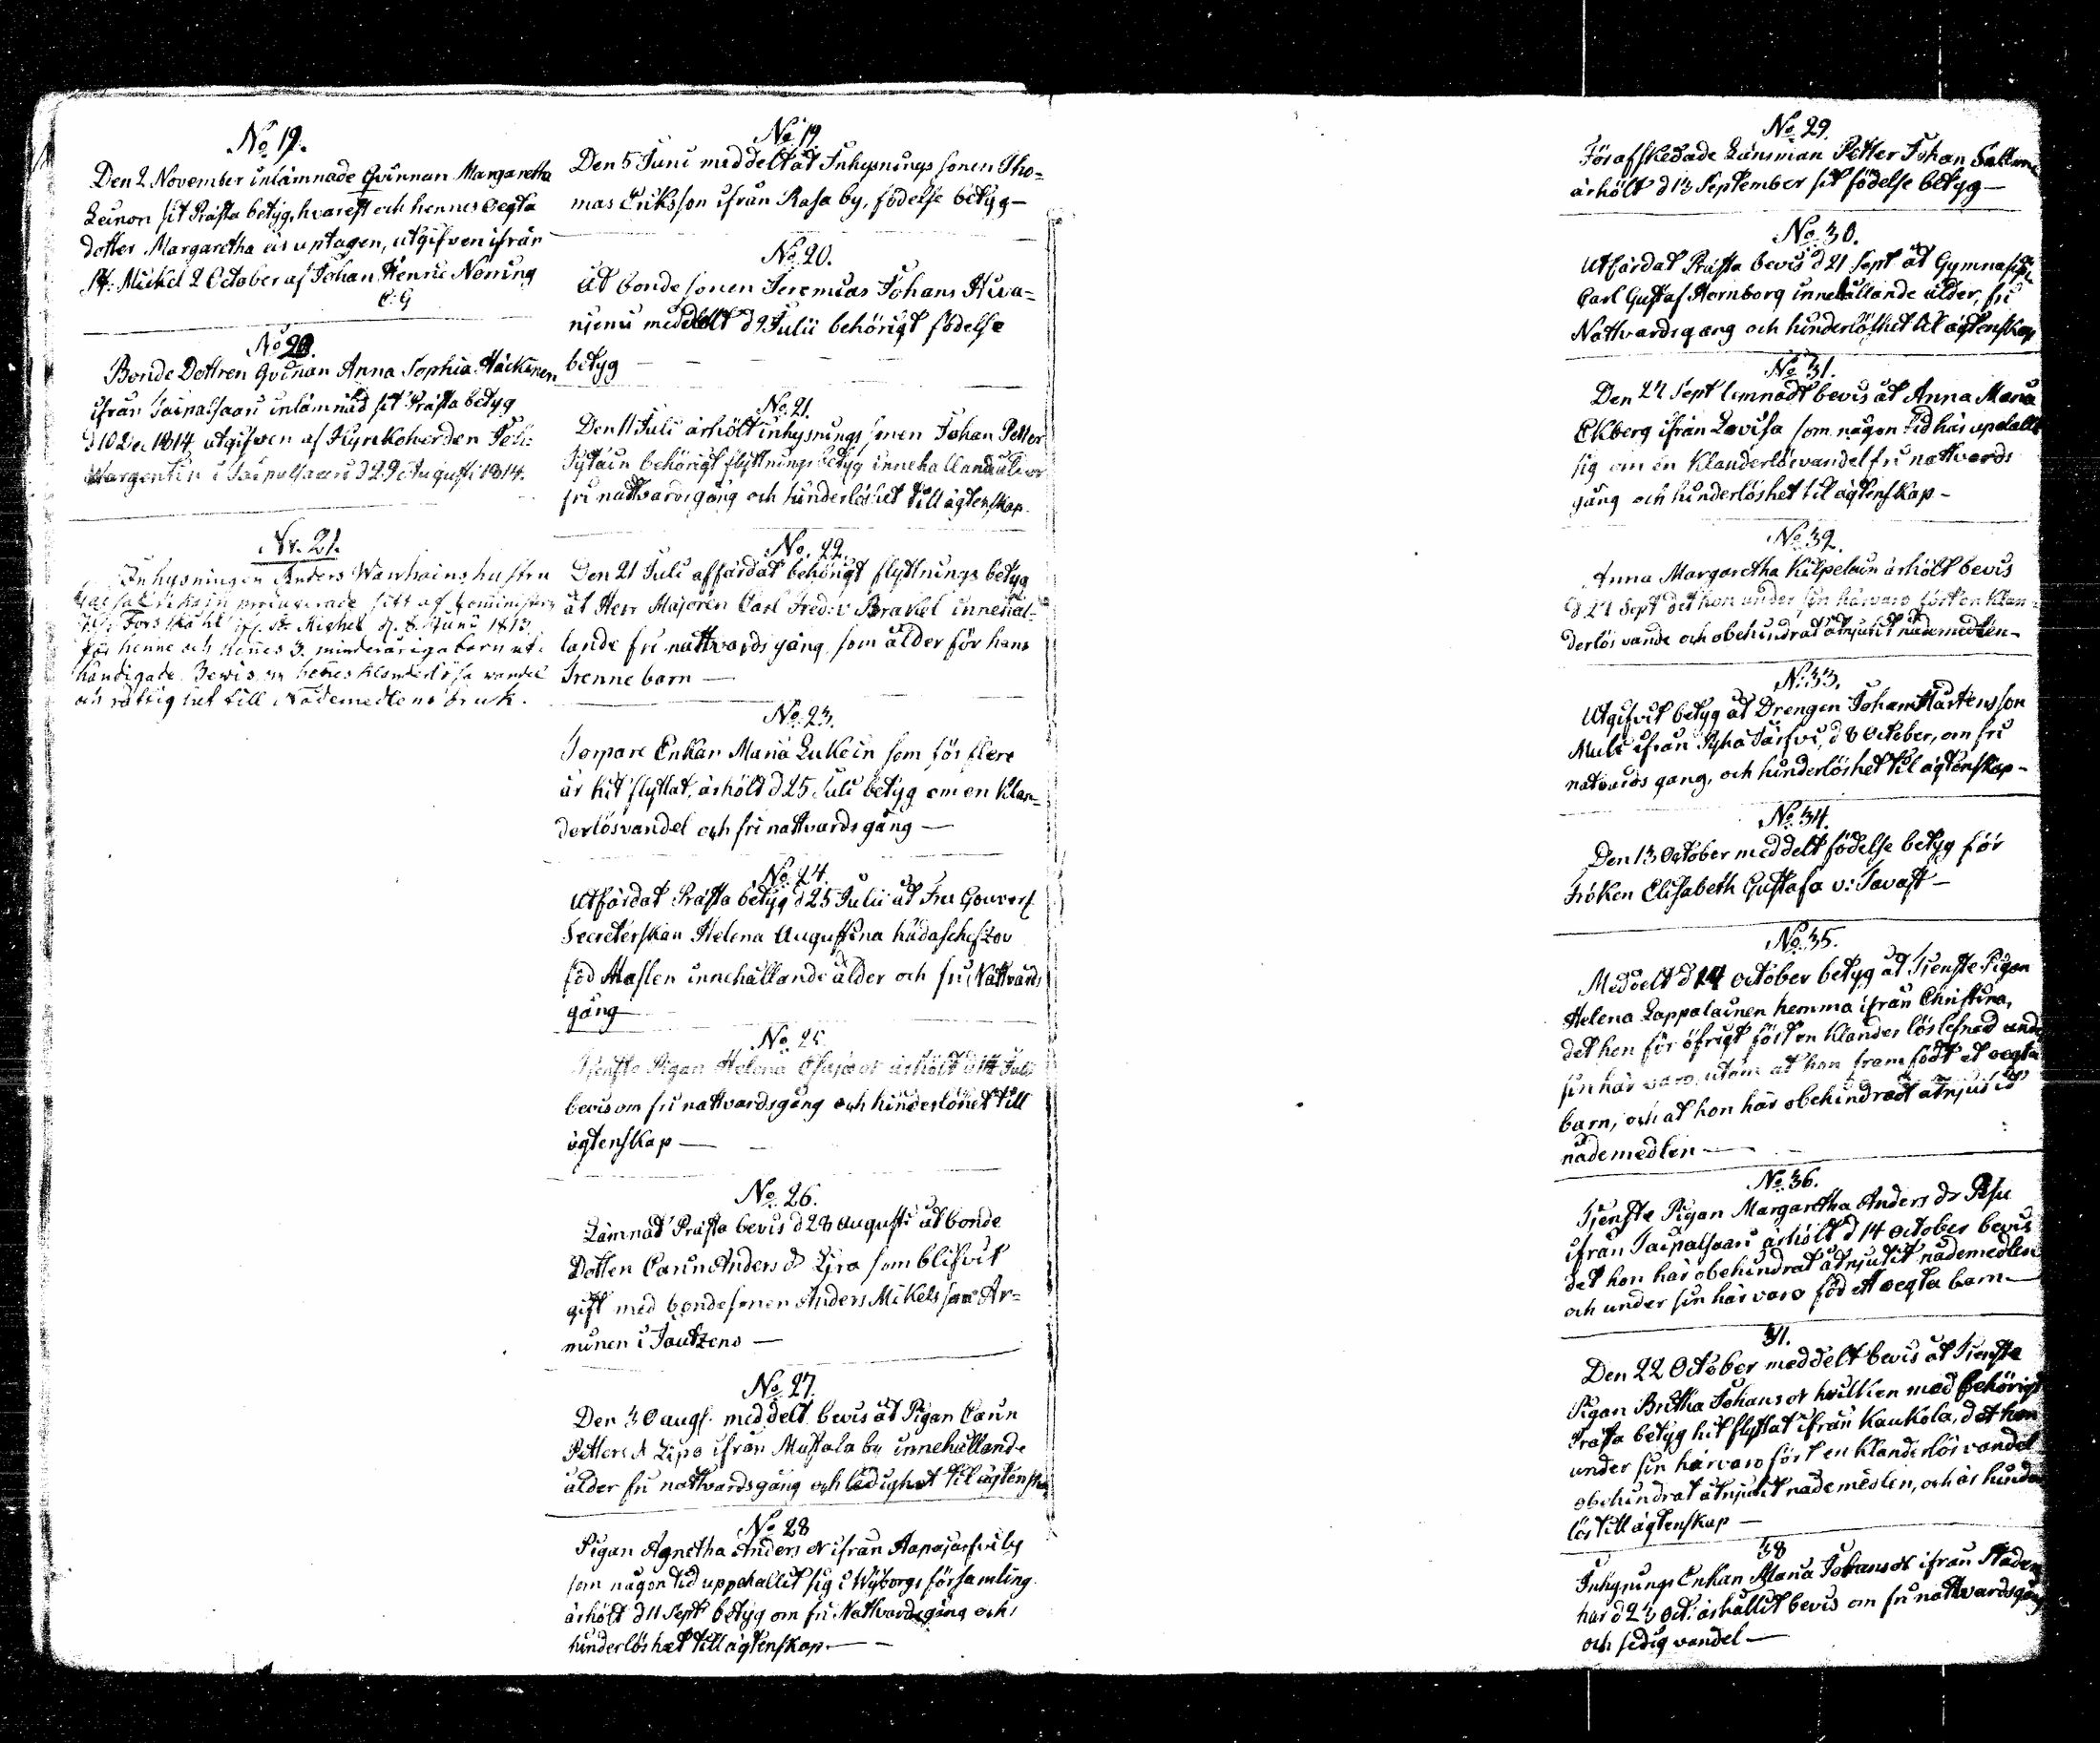 No 19.
Den 2 November inlämnade Qvinnan Margaretha
Leinon sit Prästa betyg, hvarest och hennes oegta
dotter Margaretha är uptagen, utgifven ifrån
St: Michel 2 October af Johan Henric Noring
C: G
No 20.
Bonde Dottren Qvinan Anna Sophia Häckinen
ifrån Taipalsaari inlämnad sit Prästa betyg
d 10 Dec 1814 utgifven af Kyrkoherden Joh:
Wargentin i Taipalsaari d 29 Augusti 1814.
Nr. 21.
Inhysningen Anders Wanhains hustru
producerade sitt af
Forsskåhl St. Michel d. 8. Junii 1813
för henne och hennes 3. minderåriga barn ut-
händigade Bewis om hennes klanderlösa wandel
och rättighet till Nådemedlens bruk.
No 19
Den 5 Juni meddelt åt Inhysnings sonen Tho-
mas Eriksson ifrån Rasa by, födelse betyg —
No 20.
Åt bonde sonen Jeremias Johans Huva-
njenu meddelt d 9 Julii behörigt födelse
betyg —
No. 21.
Den 11 Juli ärhölt inhysnings sonen Johan Petter
Pytäin behörigt flyttnings betyg innehållande ålder
fri nattvardsgång och hinderlöshet till ägtenskap.
No. 22.
Den 21 Juli affärdat behörigt flyttnings betyg
åt Herr Majoren Carl Fred: v: Brakel innehål-
lande fri nattvards gång som ålder för hans
Trenne barn —
No. 23.
Torpare Enkan Maria Lukein som för flere
år hit flyttat, ärhölt d 25 Juli betyg om en klan-
derlös vandel och fri nattvards gång —
No. 24.
Utfärdat Prästa betyg d 25 Julii åt Fru Gouverf
Secreterskan Helena Augustina
född Maslen innehållande ålder och fri Nattvards
gång
No. 25.
Tjenste Pigan Helena ärhölt d Juli
bevis om fri nattvardsgång och hinderlöhet till
ägtenskap —
No. 26.
Lämnat Prästa bevis d 28 augusti åt bonde
Dotten Carin Anders dr Lira som blifvit
gift med bondesonen Anders Mikelsson Ar-
minen i Jäutzeno —
No. 27.
Den 30 augs. meddelt bevis åt Pigan Carin
Petters dr Lipo ifrån Mustala by innehållande
ålder fri nattvardsgång och ledighet til ägtenska
No. 28
Pigan Agnetha Anders dr ifrån Haapajärfvi by
som någon tid uppehållit sig i Wyborgs församling
ärhölt d 11 Sept betyg om fri Nattvardsgång och
hinderlöshet till ägtenskap. —
No. 29.
För afskedade Länsman Petter Johan
ärhölt d 13 September sit födelse betyg —
No. 30.
Utfärdat Prästa bevis d 21 Sept åt Gymnasist
Carl Gustaf Hornborg innehållande ålder, fri
Nattvardsgång och hinderlöshet til ägtenskap
No. 31.
Den 22 Sept lemnadt bevis åt Anna Maria
Ekberg ifrån Lovisa som någon tid här upehållit
sig om en Klanderlös vandel fri nattvards
gång och hinderlöshet til ägtenskap —
No. 32.
Anna Margaretha Kilpeläin ärhölt bevis
d 22 Sept det hon under sin härvaro fört en klan-
derlös vande och obehindrat åtnjutit nådemedlen —
N: 33.
Utgifvit betyg åt Drengen Johan Mårtensson
Muli ifrån Pyhä Järfvi, d 8 October, om fri
natvards gang, och hinderlöshet til ägtenskap —
No. 34.
Den 13 October meddelt födelse betyg för
Fröken Elisabeth Gustafa v: Tavast —
No. 35.
Meddelt d 14 October betyg åt Tjenste Pigan
Helena Lappalainen hemma ifrån Christina,
det hon för öfrigt fört en klander lös lefnad under
sin här varo, utom at hon fram födt et oegta
barn, och at hon här obehindrat åtnjutit
nådemedlen —
No. 36.
Tjenste Pigan Margaretha Anders dr Pesu
ifrån Taipalsaari ärhölt d 14 October bevis
det hon här obehindrat åtnjutit nådemedlen
och under sin här varo föd ett oegta barn —
37.
Den 22 October meddelt bevis åt Tjenste
Pigan Britha Johans dr hvilken med behörigt
Prästa betyg hit flyttat ifrån Kaukola, det hon
under sin härvaro fört en klanderlös vandel
obehindrat åtnjutit nådemedlen, och är hinder
lös till ägtenskap —
38
Inhysnings Enkan Maria Johans dr ifrån Staden
har d 23 Oct: ärhållit bevis om fri nattvardsgång
och sedig vandel —